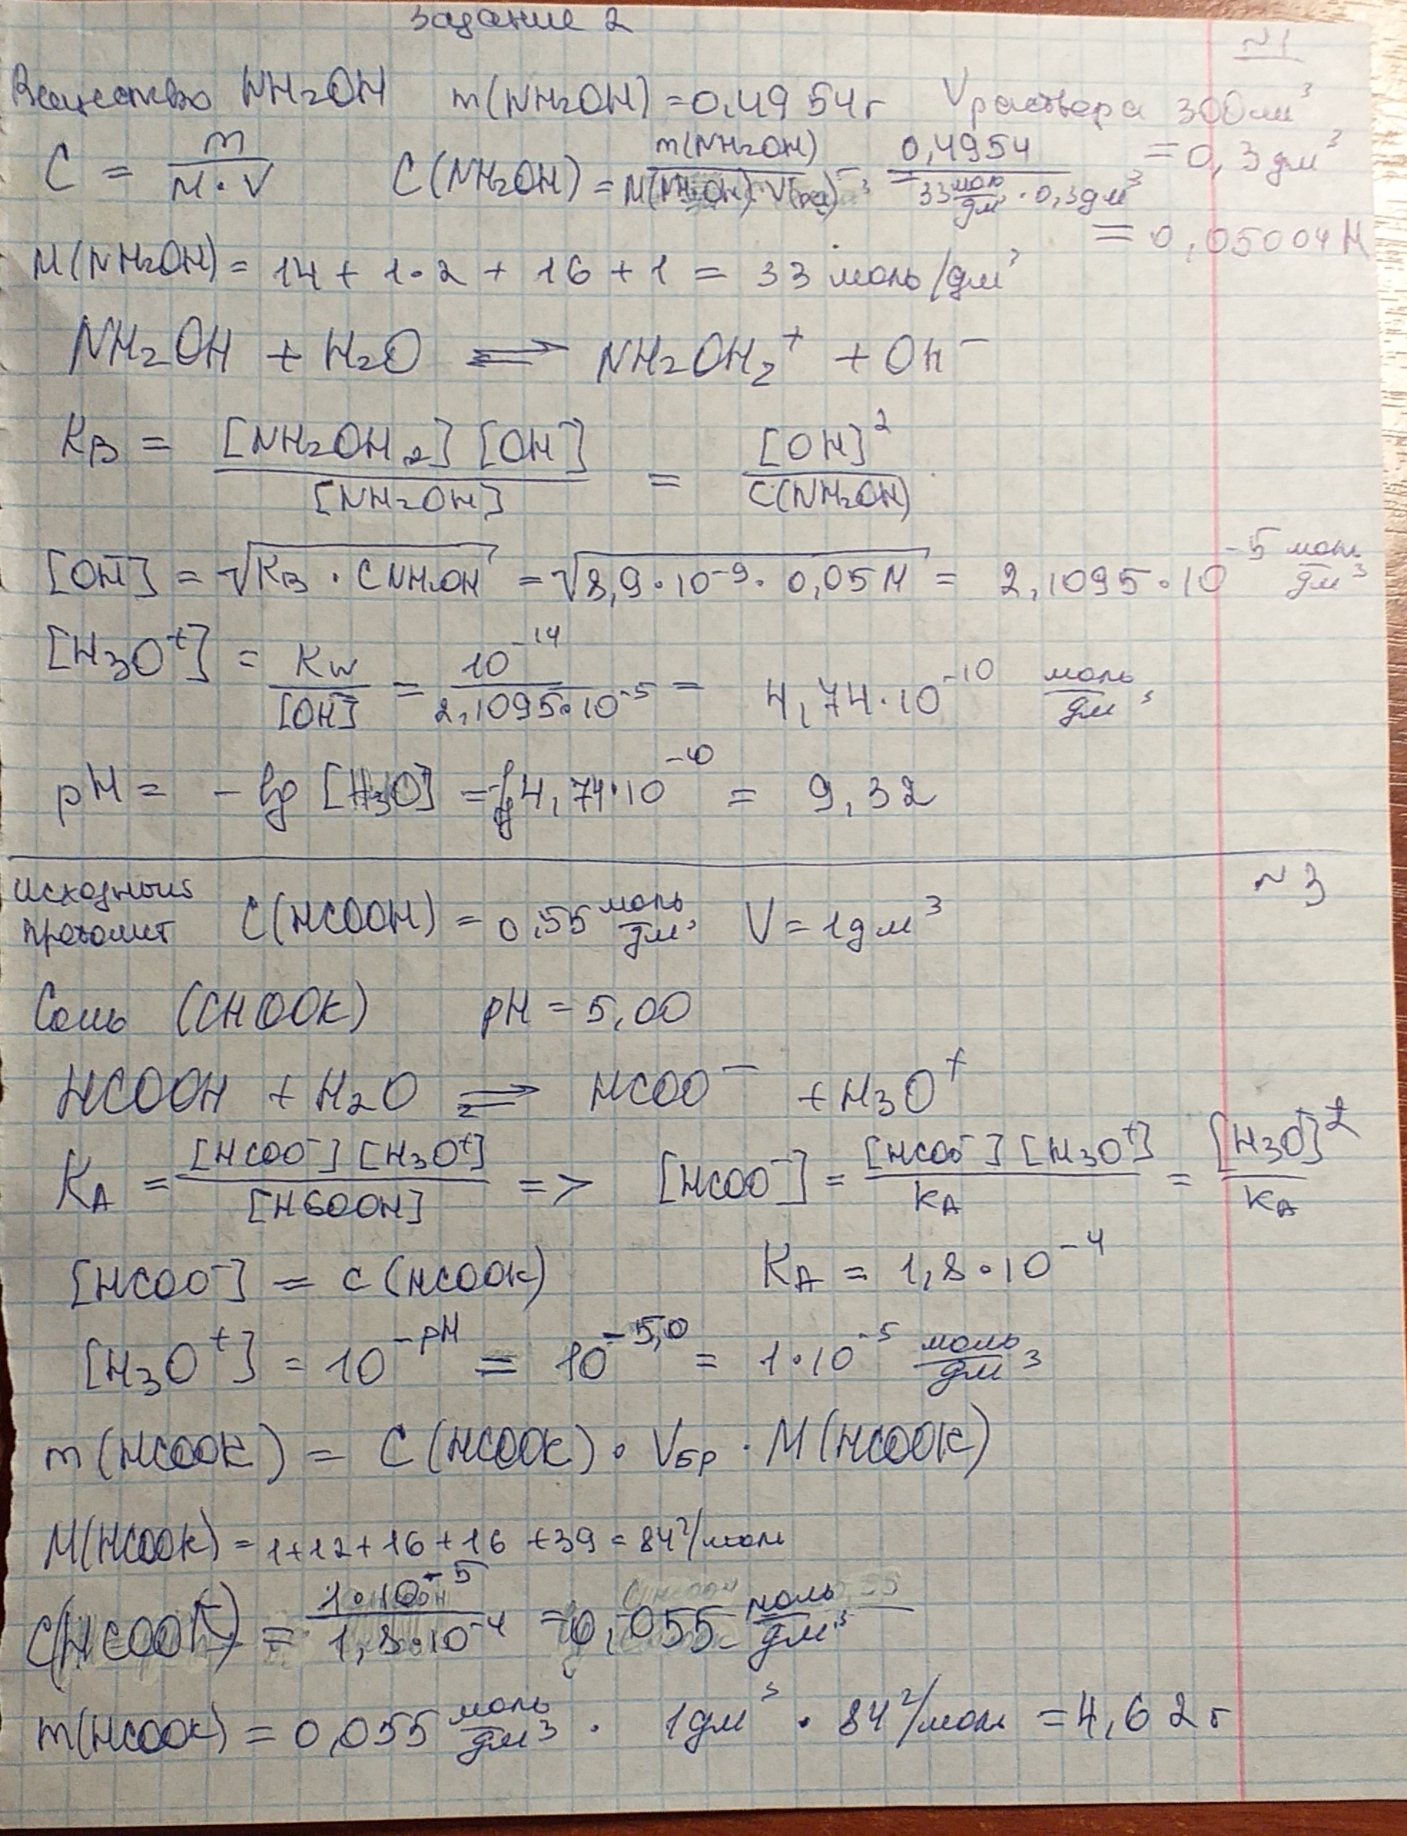 Задание 2
№1
Вещество NH₂OH m(NH₂OH) = 0,4954г Vраствора 300 см³
C = m / M·V C(NH₂OH) = m(NH₂OH) / M(NH₂OH)·V(р-ра) = 0,4954 / 33 моль/дм³ · 0,3дм³ = 0,3 дм³
= 0,05004 M
M(NH₂OH) = 14 + 1·2 + 16 + 1 = 33 моль/дм³
NH₂OH + H₂O ⇌ NH₂OH₂⁺ + OH⁻
KB = [NH₂OH₂] [OH⁻] / [NH₂OH] = [OH]² / C(NH₂OH)
[OH⁻] = √KB · CNH₂OH = √8,9·10⁻⁹· 0,05M = 2,1095·10⁻⁵ моль/дм³
[H₃O⁺] = Kw / [OH⁻] = 10⁻¹⁴ / 2,1095·10⁻⁵ = 4,74·10⁻¹⁰ моль/дм³
pH = - lg [H₃O] = -lg 4,74·10⁻¹⁰ = 9,32
№3
Исходный протолит C(HCOOH) = 0,55 моль/дм³ V = 1дм³
Соль (CHOOK) pH = 5,00
HCOOH + H₂O ⇌ HCOO⁻ + H₃O⁺
KA = [HCOO⁻] [H₃O⁺] / [HCOOH] => [HCOO⁻] = [HCOO⁻] [H₃O⁺] / KA = [H₃O⁺]² / KA
[HCOO⁻] = C(HCOOK) KA = 1,8·10⁻⁴
[H₃O⁺] = 10⁻ᵖᴴ = 10⁻⁵,⁰ = 1·10⁻⁵ моль/дм³
m(HCOOK) = C(HCOOK) · Vбр · M(HCOOK)
M(HCOOK) = 1+12+16+16+39 = 84 г/моль
C(HCOOK) = 1·10⁻⁵ / 1,8·10⁻⁴ = 0,055 моль/дм³
m(HCOOK) = 0,055 моль/дм³ · 1дм³ · 84 г/моль = 4,62 г